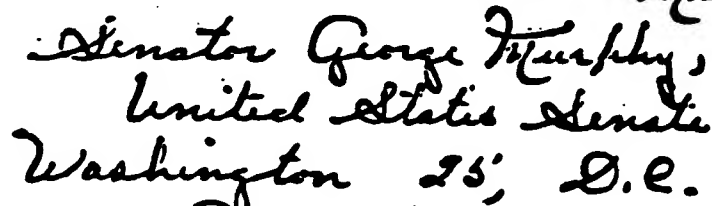 Senator George Murphy,
United States Senate
Washington 25, D.C.